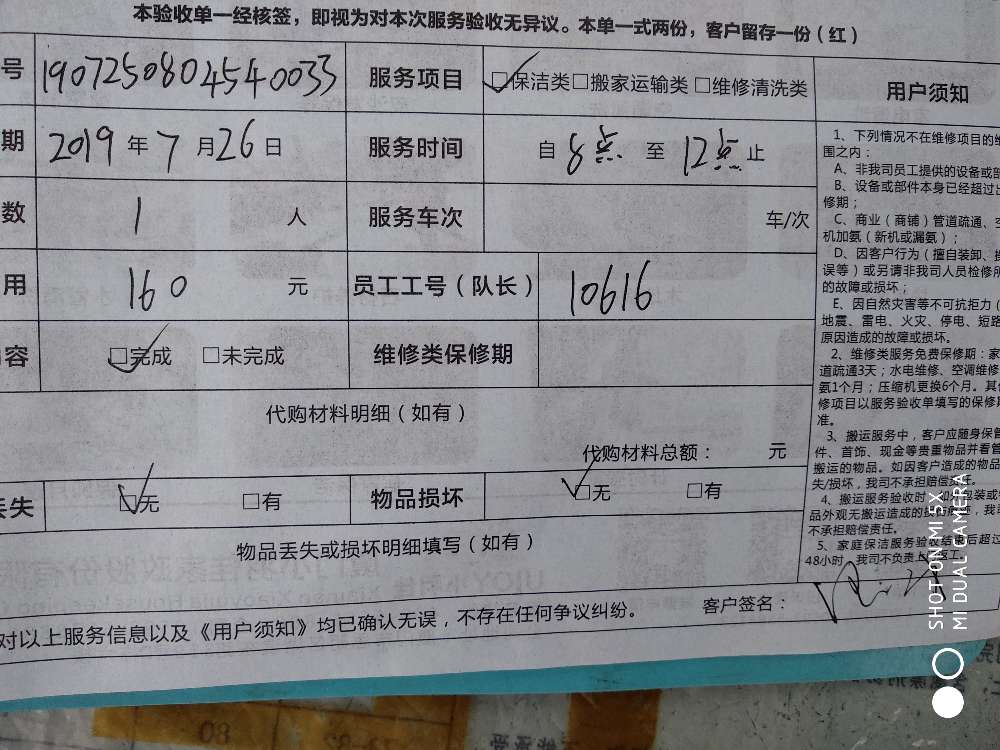 本验收单一经核签，即视为对本次服务验收无异议。本单一式两份，客户留存一份（红）
号 1907250804540033 服务项目 □保洁类□搬家运输类 □维修清洗类 用户须知
期 2019 年 7 月 26 日 服务时间 自 8点 至 12点 止
数 1 人 服务车次 车/次
用 160 元 员工工号（队长） 10616
容 □完成 □未完成 维修类保修期
代购材料明细（如有）
代购材料总额： 元
丢失 □无 □有 物品损坏 □无 □有
物品丢失或损坏明细填写（如有）
1、下列情况不在维修项目的维
围之内：
A、非我司员工提供的设备或部
B、设备或部件本身已经超过出
修期；
C、商业（商铺）管道疏通、空
机加氨（新机或漏氨）；
D、因客户行为（擅自装卸、操
误等）或另请非我司人员检修所
的故障或损坏；
E、因自然灾害等不可抗拒力（
地震、雷电、火灾、停电、短路
原因造成的故障或损坏。
2、维修类服务免费保修期：家
道疏通3天；水电维修、空调维修
氨1个月；压缩机更换6个月。其他
修项目以服务验收单填写的保修期
准。
3、搬运服务中，客户应随身保管
件、首饰、现金等贵重物品并看管
搬运的物品。如因客户造成的物品
失/损坏，我司不承担赔偿责任。
4、搬运服务验收时，如纸包装或
品外观无搬运造成的损伤痕迹，我
不承担赔偿责任。
5、家庭保洁服务验收结束后超过
48小时，我司不负责上门返工。
对以上服务信息以及《用户须知》均已确认无误，不存在任何争议纠纷。 客户签名：
SHOT ON MI 5X
MI DUAL CAMERA